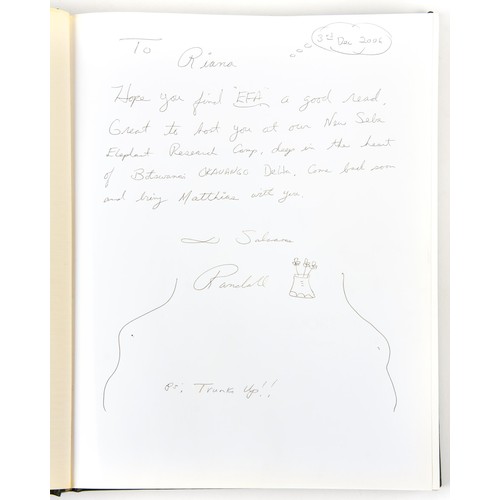 To
3rd Dec 2006
Riana
Hope you find "EFA" a good read.
Great to host you at our New Seba
Elephant Research Camp, deep in the heart
of Botswanas OKAVANGO Delta. Come back soon
and bring Matthias with you.
Randall
PS, Trunks Up!!